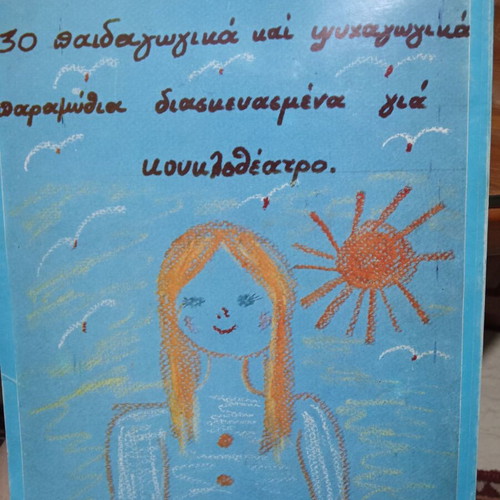 30 παιδαγωγικά καί ψυχαγωγικά
παραμύθια διασκευασμένα γιά
κουκλοθέατρο.